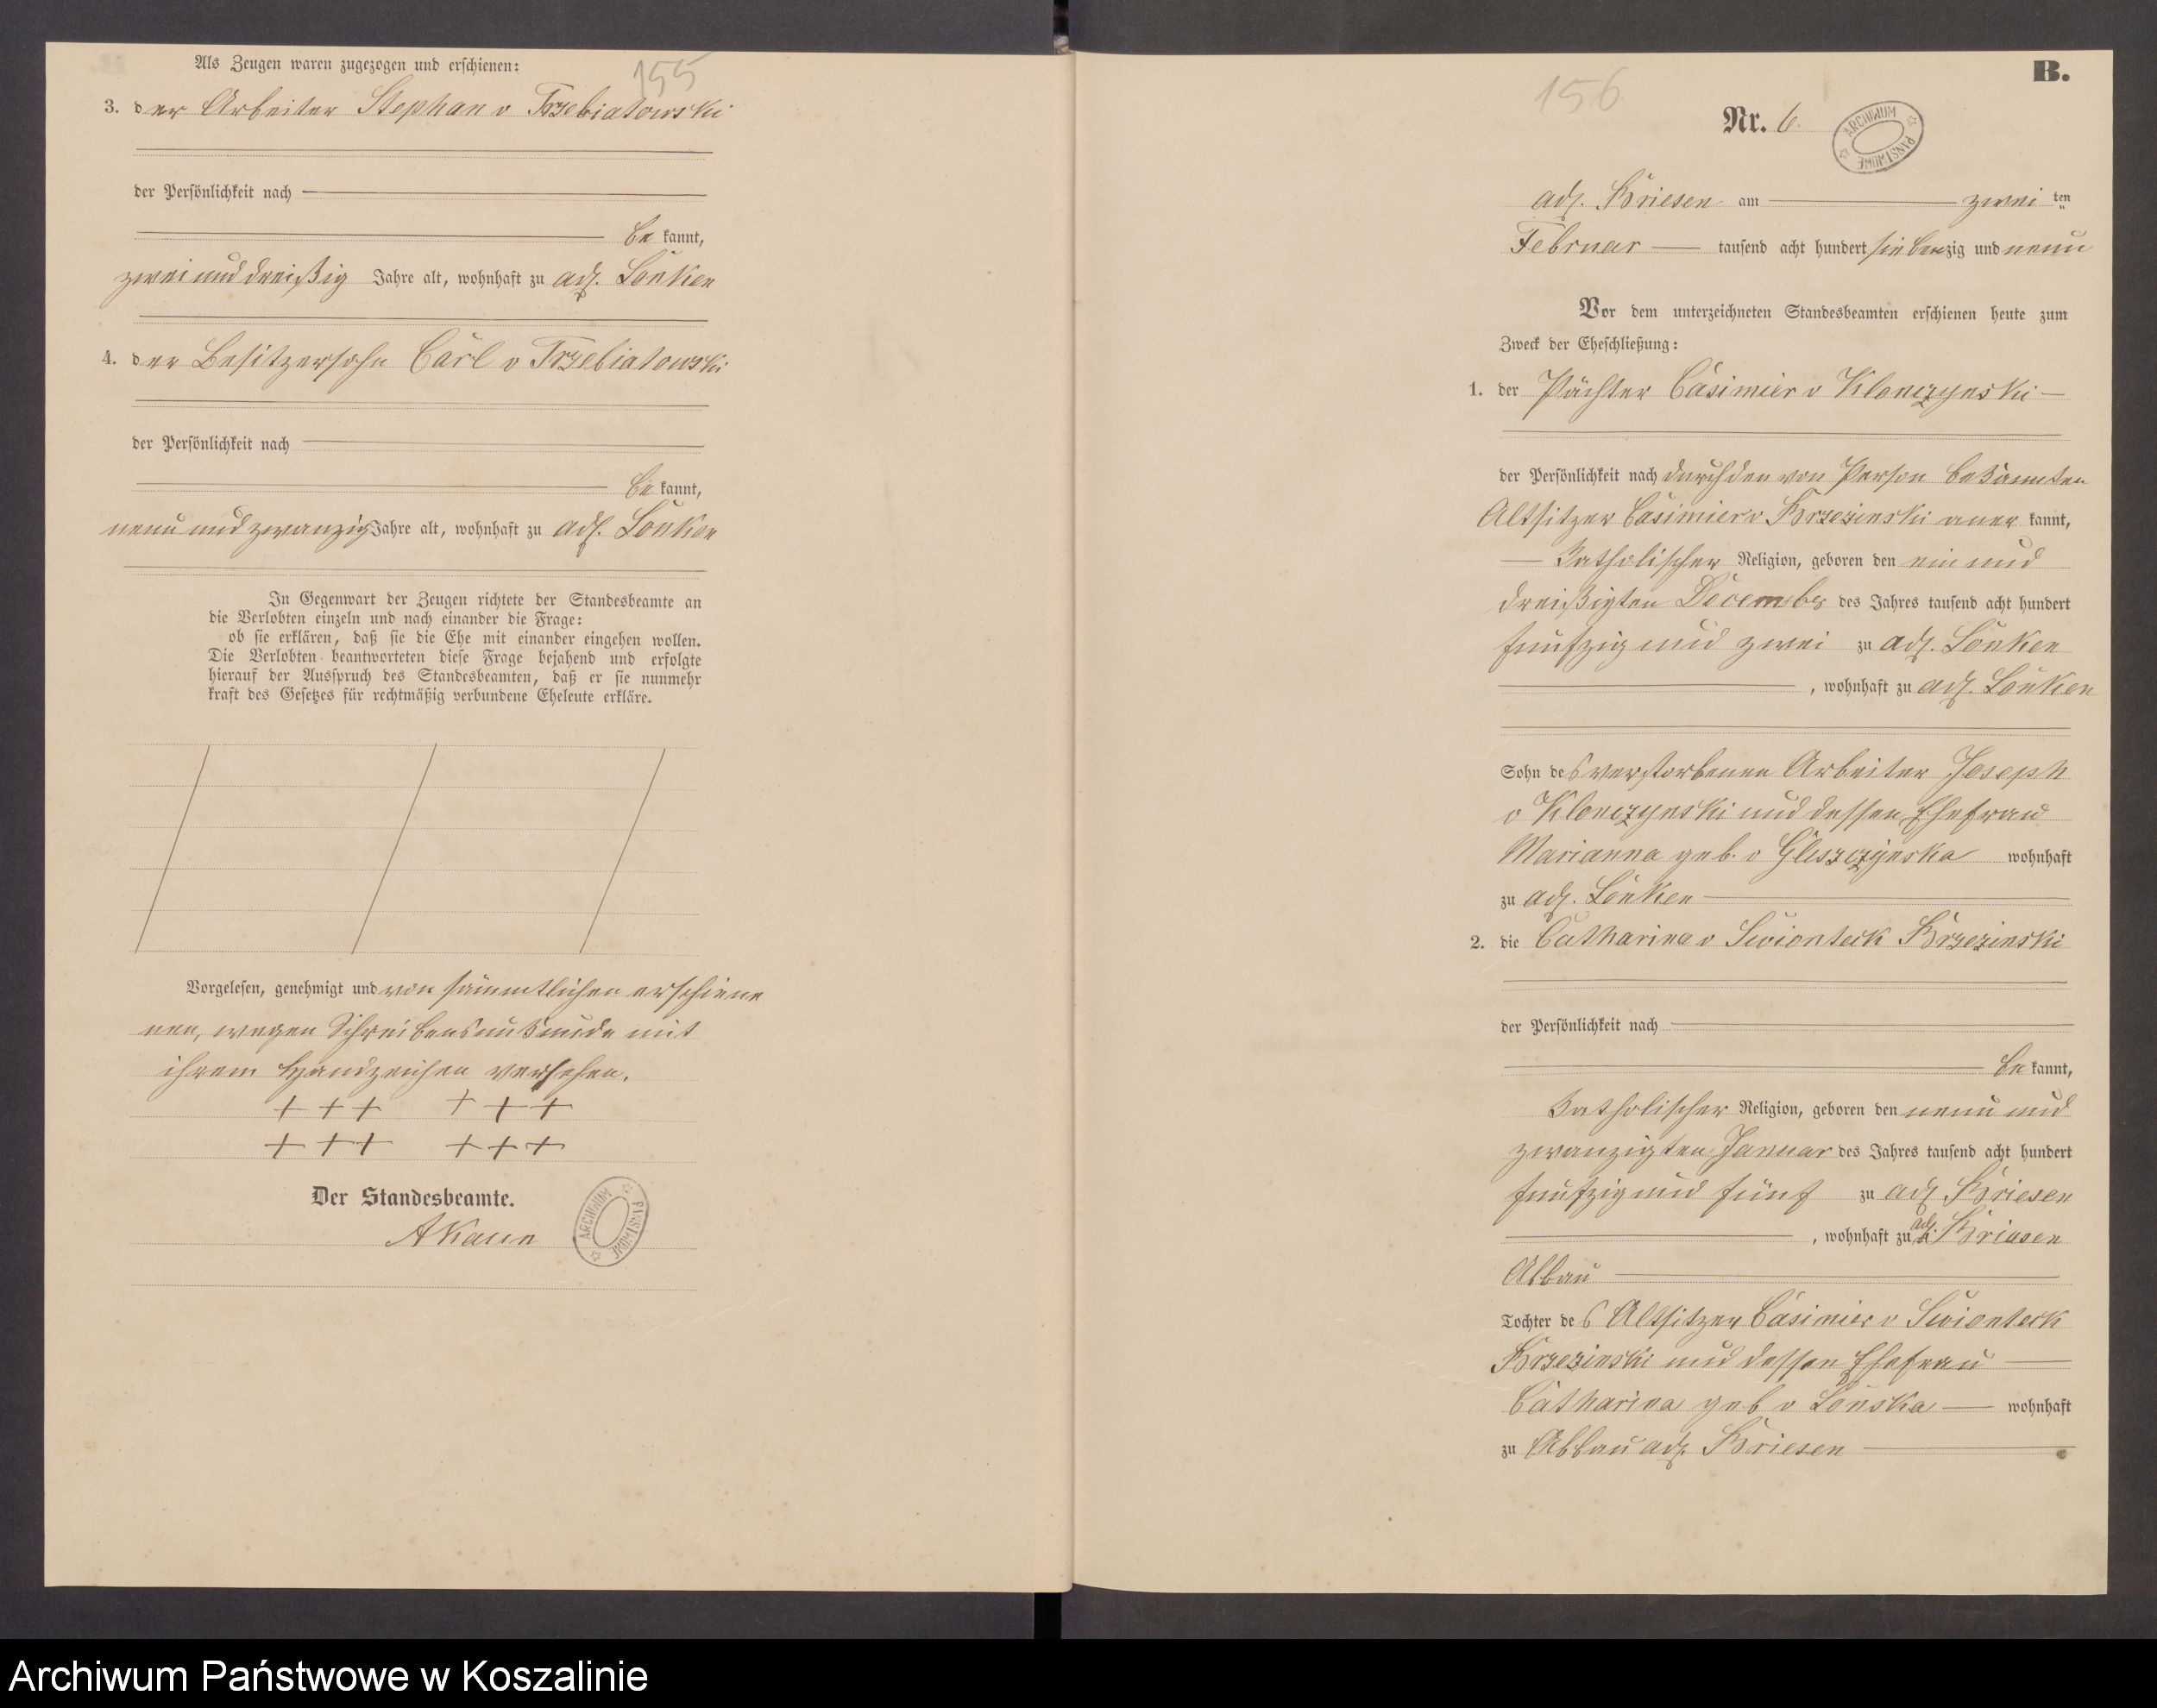 155
Als Zeugen waren zugezogen und erschienen:
3. der Arbeiter Stephan v Trzebiatowski
der Persönlichkeit nach
be kannt,
zwei und dreißig Jahre alt, wohnhaft zu adl. Lonken
4. der Besitzersohn Carl v Trzebiatowski
der Persönlichkeit nach
be kannt,
neun und zwanzig Jahre alt, wohnhaft zu adl. Lonken
In Gegenwart der Zeugen richtete der Standesbeamte an
die Verlobten einzeln und nach einander die Frage:
ob sie erklären, daß sie die Ehe mit einander eingehen wollen.
Die Verlobten beantworteten diese Frage bejahend und erfolgte
hierauf der Ausspruch des Standesbeamten, daß er sie nunmehr
kraft des Gesetzes für rechtmäßig verbundene Eheleute erkläre.
Vorgelesen, genehmigt und von sämmtlichen erschiene
nen, wegen Schreibensunkunde mit
ihrem Handzeichen versehen.
+++ +++
+++ +++
Der Standesbeamte.
ARCHIWUM PAŃSTWOWE
156
B.
Nr. 6.
ARCHIWUM PAŃSTWOWE
adl. Briesen am zwei ten
Februar tausend acht hundert siebenzig und neun
Vor dem unterzeichneten Standesbeamten erschienen heute zum
Zweck der Eheschließung:
1. der Pächter Casimier v Klonczynski
der Persönlichkeit nach durch den von Person bekannten
Altsitzer Casimier v Brzezinski aner kannt,
katholischer Religion, geboren den ein und
dreißigten Decembr des Jahres tausend acht hundert
funfzig und zwei zu adl. Lonken
, wohnhaft zu adl. Lonken
Sohn des verstorbenen Arbeiter Joseph
v Klonczynski und dessen Ehefrau
Marianna geb. v Gliszczynska wohnhaft
zu adl. Lonken
2. die Catharina v Swionteck Brzezinski
der Persönlichkeit nach
be kannt,
katholischer Religion, geboren den neun und
zwanzigten Januar des Jahres tausend acht hundert
funfzig und fünf zu adl Briesen
, wohnhaft zu adl. Briesen
Abbau
Tochter des Altsitzer Casimier v Swionteck
Brzezinski und dessen Ehefrau
Catharina geb v Lonska wohnhaft
zu Abbau adl. Briesen
Archiwum Państwowe w Koszalinie